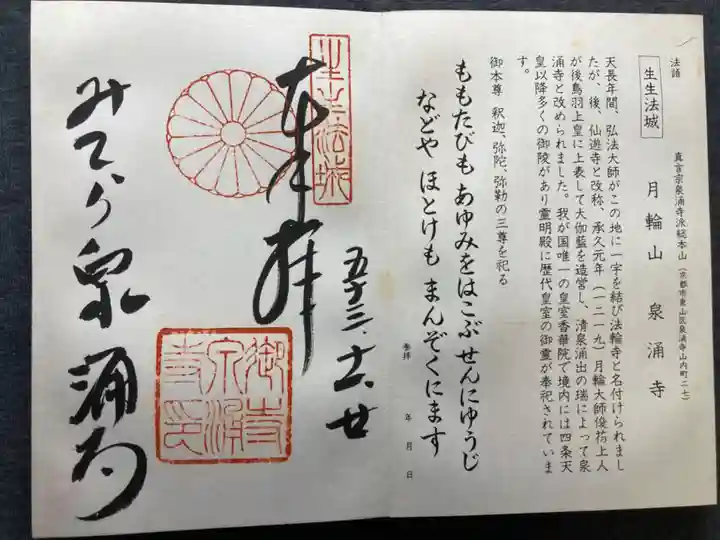 法語
生生法城
真言宗泉涌寺派総本山(京都市東山区泉涌寺山内町二七)
月輪山 泉涌寺
天長年間、弘法大師がこの地に一宇を結び法輪寺と名付けられまし
たが、後、仙遊寺と改称、承久元年(一二一九)月輪大師俊芿上人
が後鳥羽上皇に上表して大伽藍を造営し、清泉涌出の瑞によって泉
涌寺と改められました。我が国唯一の皇室香華院で境内には四条天
皇以降多くの御陵があり霊明殿に歴代皇室の御霊が奉祀されていま
す。
御本尊 釈迦、弥陀、弥勒の三尊を祀る
ももたびも あゆみをはこぶ せんにゆうじ
などや ほとけも まんぞくにます
参拝 年 月 日
生生法城
奉拝
五十三、十一、廿
御寺
泉涌
寺印
みてら泉涌寺